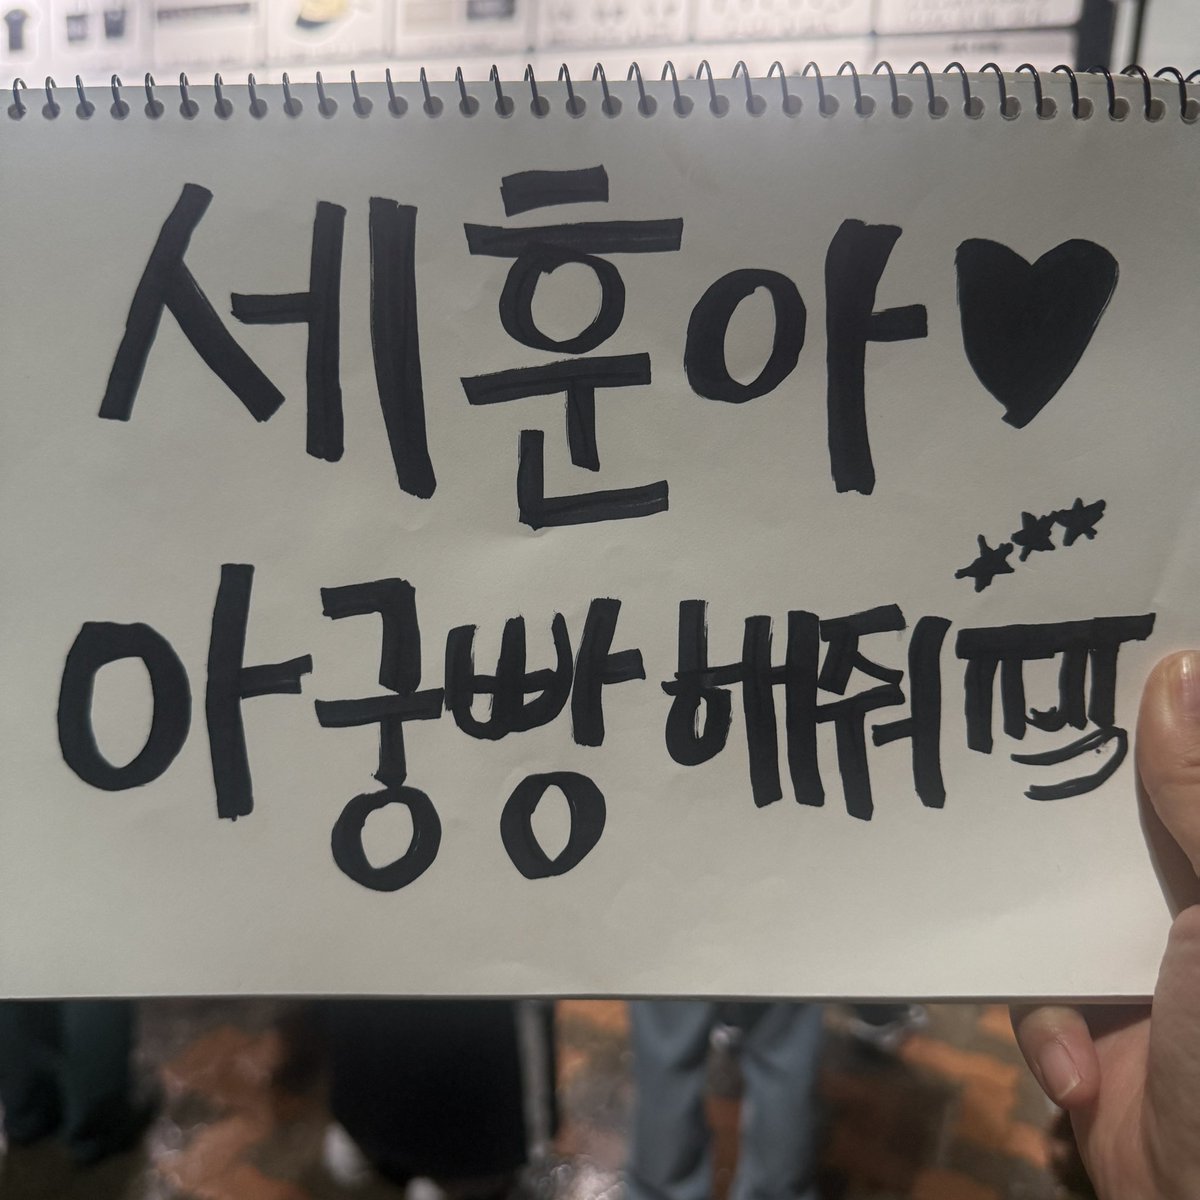 세훈아♥
아궁빵해줘